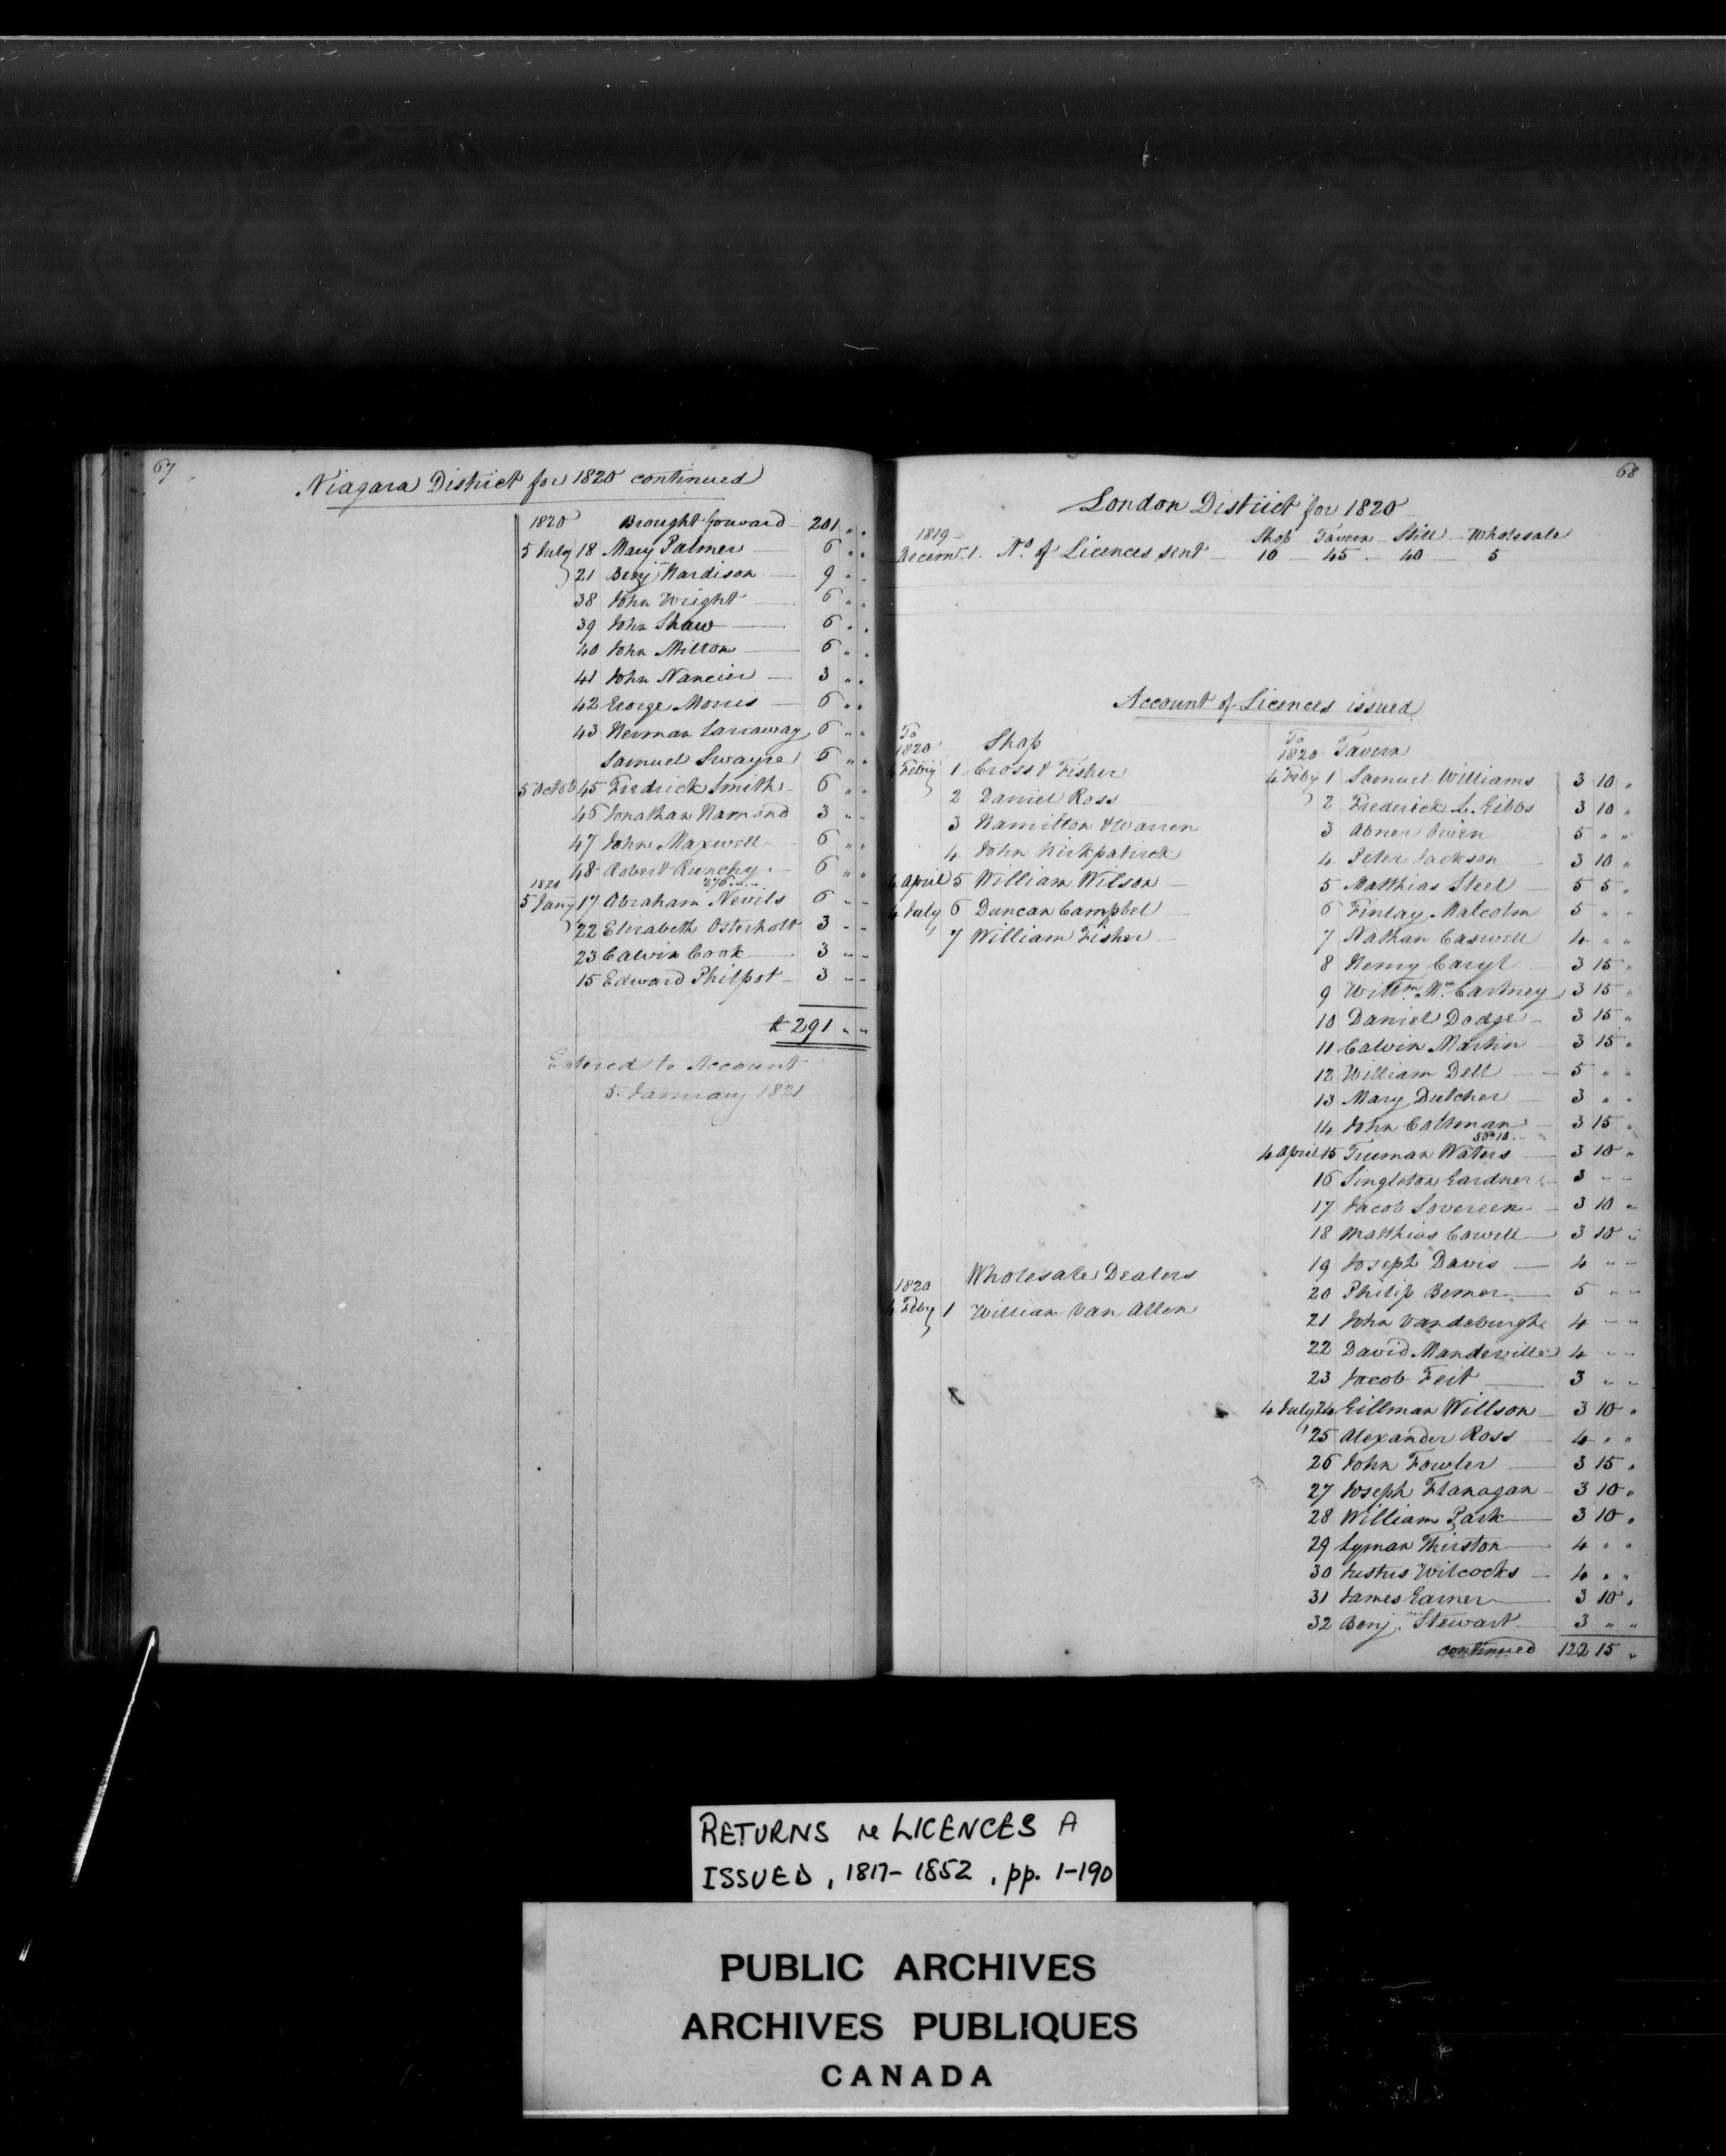 67
Niagara District for 1820 continued
1820 Brought forward 201 " "
5 July 18 Mary Palmer 6 " "
21 Benjn Hardison 9 " "
38 John Wright 6 " "
39 John Shaw 6 " "
40 John Milton 6 " "
41 John Nancier 3 " "
42 George Morris 6 " "
43 Herman Larraway 6 " "
Samuel Swayze 6 " "
5 Octob 45 Fredrick Smith 6 " "
46 Jonathan Hamond 3 " "
47 John Maxwell 6 " "
48 Robert Runchy 6 " "
276 " "
1821
5 Jany 17 Abraham Nevils 6 " "
22 Elizabeth Osterholt 3 " "
23 Calvin Cook 3 " "
15 Edward Philpot 3 " "
£ 291 " "
Entered to Account
5 January 1821
68
London District for 1820
1819 Shop Tavern Still Wholesale
Decemr. 1. No of Licences sent 10 45 40 5
Account of Licences issued
To
1820 Shop
4 Feby 1 Cross & Fisher
2 Daniel Ross
3 Hamilton & Warren
4 John Kirkpatrick
4 April 5 William Wilson
4 July 6 Duncan Campbel
7 William Fisher
1820 Wholesale Dealers
4 Feby 1 William Van Allen
To
1820 Tavern
4 Feby 1 Samuel Williams 3 10 "
2 Frederick L. Gibbs 3 10 "
3 Abner Owen 5 " "
4 Peter Jackson 3 10 "
5 Matthias Steel 5 5 "
6 Finlay Malcolm 5 " "
7 Nathan Caswell 4 " "
8 Henry Caryl 3 15 "
9 Willm. Mc. Cartney 3 15 "
10 Daniel Dodge 3 15 "
11 Calvin Martin 3 15 "
12 William Dell 5 " "
13 Mary Dutcher 3 " "
14 John Coltman 3 15 "
4 April 15 Truman Waters 3 10 "
16 Singleton Gardner 3 " "
17 Jacob Sovereen 3 10 "
18 Matthias Cowell 3 10 "
19 Joseph Davis 4 " "
20 Philip Bemer 5 " "
21 John Vandeburgh 4 " "
22 David Mandeville 4 " "
23 Jacob Feit 3 " "
4 July 24 Gillman Willson 3 10 "
25 Alexander Ross 4 " "
26 John Fowler 3 15 "
27 Joseph Flanagan 3 10 "
28 William Park 3 10 "
29 Lyman Thirston 4 " "
30 Justus Wilcocks 4 " "
31 James Garner 3 10 "
32 Benjn. Stewart 3 " "
continued 122 15 "
RETURNS re LICENCES A
ISSUED, 1817-1852, pp. 1-190
PUBLIC ARCHIVES
ARCHIVES PUBLIQUES
CANADA